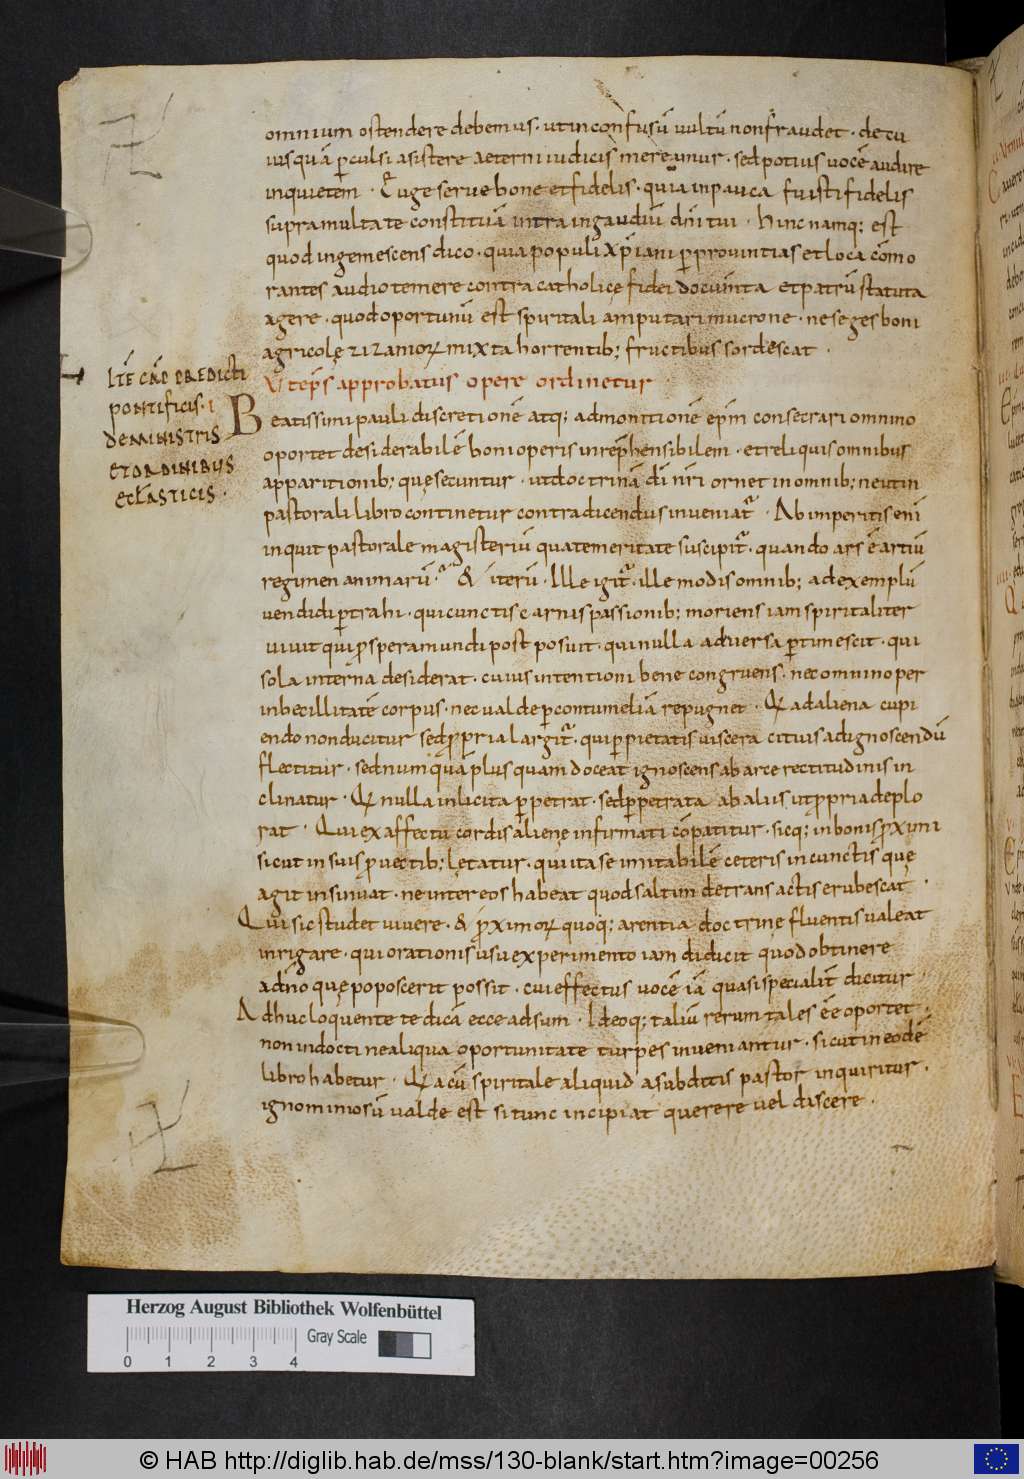 omnium ostendere debemus · ut inconfusū uultū non fraudet · de cu
ius quā ꝑculsi asistere aeterni iudicis mereamur · sed potius uocē audire
inquietem · Euge serue bone et fidelis · quia in pauca fuisti fidelis
supra multa te constituā intra in gaudiū dn̄i tui · hinc namq; est
quod ingemescens dico · quia populi xp̄iani ꝑ prouintias et loca cōmo
rantes audio temere contra catholicę fidei documīta et patrū statuta
agere · quod oportunū est spiritali amputari mucrone · ne seges boni
agricolę zizamoꝝ mixta horrentib; fructibus sordescat ·
Vt ep̄s approbatus opere ordinetur
Beatissimi pauli discretionē atq; admonitionē ep̄m consecrari omnino
oportet desiderabilē boni operis inrep̄hensibilem · et reliquis omnibus
apparitionib; quę secuntur · ut doctrinā dī nr̄i ornet in omnib; ne ut in
pastorali libro continetur contradicendus inueniat᷑ · Ab imperitis enī
inquit pastorale magisteriū qua temeritate suscipit᷑ · quando ars ē artiū
regimen animarū · & iterū · Ille igit᷑ · ille modis omnib; ad exemplū
uendi di ꝑtrahi · qui cunctis carnis passionib; moriens iam spiritaliter
uiuit qui ꝓspera mundi postposuit · qui nulla aduersa ꝑtimescit · qui
sola interna desiderat · cuius intentioni bene congruens · nec omnino per
inbecillitatē corpus · nec ualde ꝑ contumeliā repugnet · Q ad aliena cupi
endo non ducitur sed ꝓpria largit᷑ · qui ꝑ pietatis uiscera citius ad ignoscendū
flectitur · sed numquā plus quam doceat ignoscens ab arce rectitudinis in
clinatur · Q nulla inlicita ꝑpetrat · sed ꝑpetrata ab aliis ut ꝓpria deplo
rat · Qui ex affectu cordis alienę infirmati cōpatitur · sicq; in bonis ꝓximi
sicut in suis ꝓuectib; lętatur · qui ita se imitabilē ceteris in cunctis quę
agit insinuat · ne inter eos habeat quod saltim de transactis erubescat ·
Qui sic studet uiuere · & ꝓximoꝝ quoq; arentia doctrinę fluentis ualeat
inrigare · qui orationis usu experimento iam didicit quod obtinere
a dn̄o quę poposcerit possit · cui effectus uocē iā quasi specialit̄ dicitur ·
Adhuc loquente te dicā ecce adsum · Ideoq; taliū rerum tales ēe oportet ·
non indocti ne aliqua oportunitate turpes inueniantur · sicut in eodē
libro habetur · Q a cū spiritale aliquid a subditis pastor inquiritur ·
ignominiosū ualde est si tunc incipiat querere uel discere ·
ITĒ CAP̄ PREDICTI
PONTIFICIS · I
DE MINISTRIS
ET ORDINIBUS
ECLĀSTICIS ·
Herzog August Bibliothek Wolfenbüttel
Gray Scale
0 1 2 3 4
© HAB http://diglib.hab.de/mss/130-blank/start.htm?image=00256